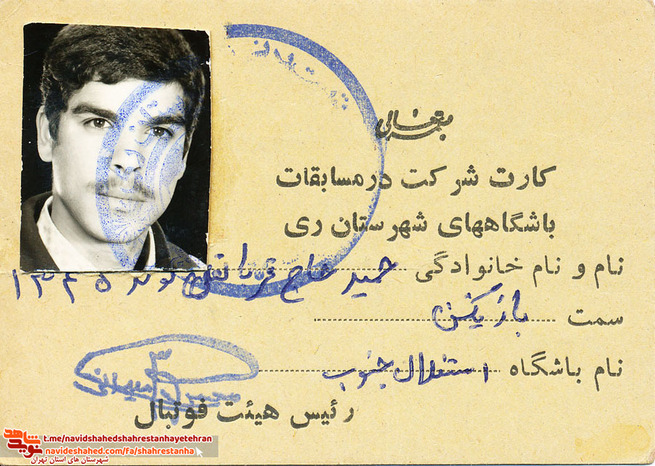 بسمه تعالی
کارت شرکت در مسابقات
باشگاههای شهرستان ری
نام و نام خانوادگی حمید حاج قربانی متولد ۱۳۴۵
سمت بازیکن
نام باشگاه استقلال جنوب
رئیس هیئت فوتبال
t.me/navidshahedshahrestanhayetehran
navideshahed.com/fa/shahrestanha
شهرستان های استان تهران